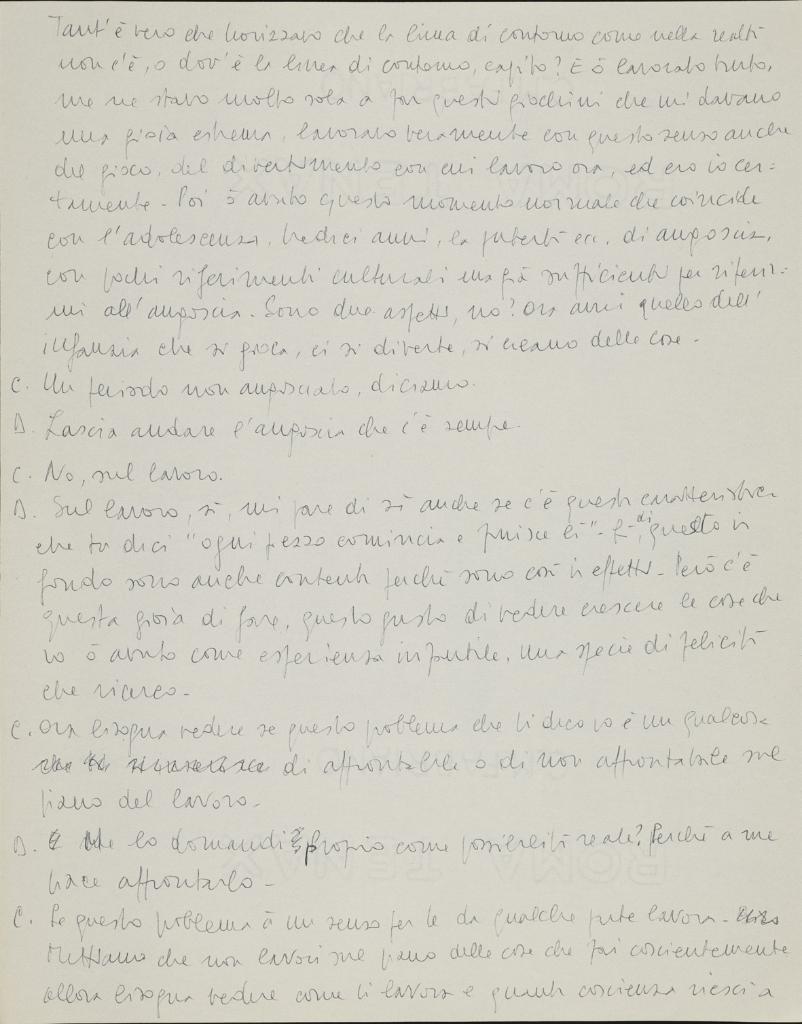 Tant'è vero che horizzavo che la linea di contorno come nella realtà
non c'è, o dov'è la linea di contorno, capito? E ò lavorato tanto,
me ne stavo molto sola a far questi giochini che mi davano
una gioia estrema, lavoravo veramente con questo senso anche
del gioco, del divertimento con cui lavoro ora, ed ero io cer-
tamente - Poi ò avuto questo momento normale che coincide
con l'adolescenza, tredici anni, la pubertà ecc. di angoscia,
con pochi riferimenti culturali ma già sufficienti per riferir-
mi all'angoscia. Sono due aspetti, no? Ora anni quello dell'
infanzia che si gioca, ci si diverte, si creano delle cose -
C. Un periodo non angosciato, diciamo.
D. Lascia andare l'angoscia che c'è sempre.
C. No, sul lavoro.
D. Sul lavoro, sì, mi pare di sì anche se c'è questa caratteristica
che tu dici "ogni pezzo comincia e finisce lì" - di questo in
fondo sono anche contenta perché sono così in effetti - Però c'è
questa gioia di fare, questo gusto di vedere crescere le cose che
io ò avuto come esperienza infantile, una specie di felicità
che ricerco -
C. Ora bisogna vedere se questo problema che ti dico io è un qualcosa
di affrontabile o di non affrontabile sul
piano del lavoro -
D. Me lo domandi proprio come possibilità reale? Perché a me
piace affrontarlo -
C. Se questo problema à un senso per te da qualche parte lavora -
Mettiamo che non lavori sul piano delle cose che fai coscientemente
allora bisogna vedere come ti lavora e quanta coscienza riesci a